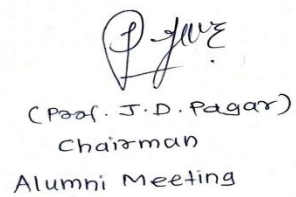 (Prof. J.D. Pagar)
Chairman
Alumni Meeting